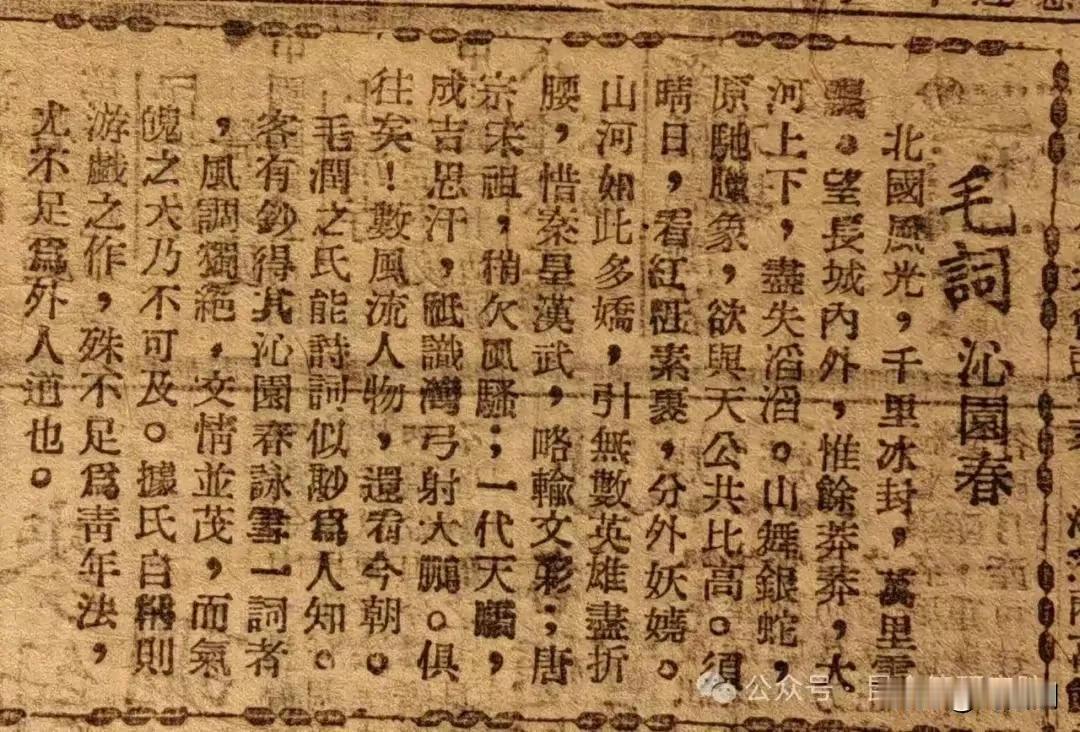 毛詞 沁園春
北國風光,千里冰封,萬里雪
飄。望長城內外,惟餘莽莽,大
河上下,盡失滔滔。山舞銀蛇,
原馳臘象,欲與天公共比高。須
晴日,看紅粧素裹,分外妖嬈。
山河如此多嬌,引無數英雄盡折
腰,惜秦皇漢武,略輸文彩;唐
宗宋祖,稍欠風騷;一代天驕,
成吉思汗,祇識灣弓射大鵰。俱
往矣!數風流人物,還看今朝。
毛潤之氏能詩詞似尠為人知。
客有鈔得其沁園春詠雪一詞者
,風調獨絕,文情並茂,而氣
魄之大乃不可及。據氏自稱則
游戲之作,殊不足為青年法,
尤不足為外人道也。
公众号